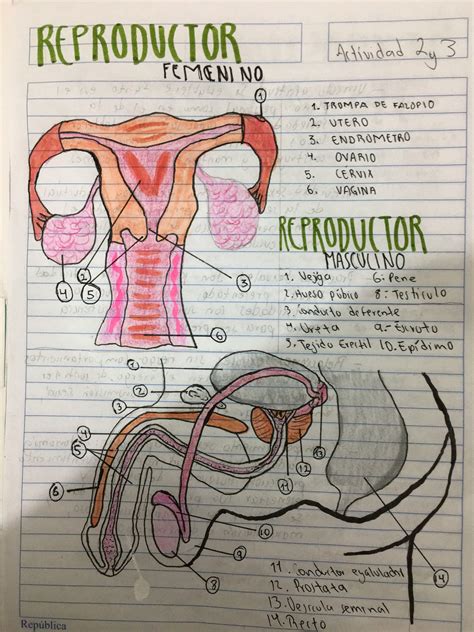 REPRODUCTOR
FEMENINO
Actividad 2 y 3
1. TROMPA DE FALOPIO
2. UTERO
3. ENDROMETRO
4. OVARIO
5. CÉRVIX
6. VAGINA
1
4
2
5
3
6
REPRODUCTOR
MASCULINO
1. Vejiga
2. Hueso púbico
3. Conducto deferente
4. Uretra
5. Tejido Erectil
6. Pene
8. Testiculo
9. Escroto
10. Epídimo
1
2
3
4
5
6
13
12
11
10
9
8
14
11. Conductor eyaculador
12. Prostata
13. Vesicula seminal
14. Recto
República